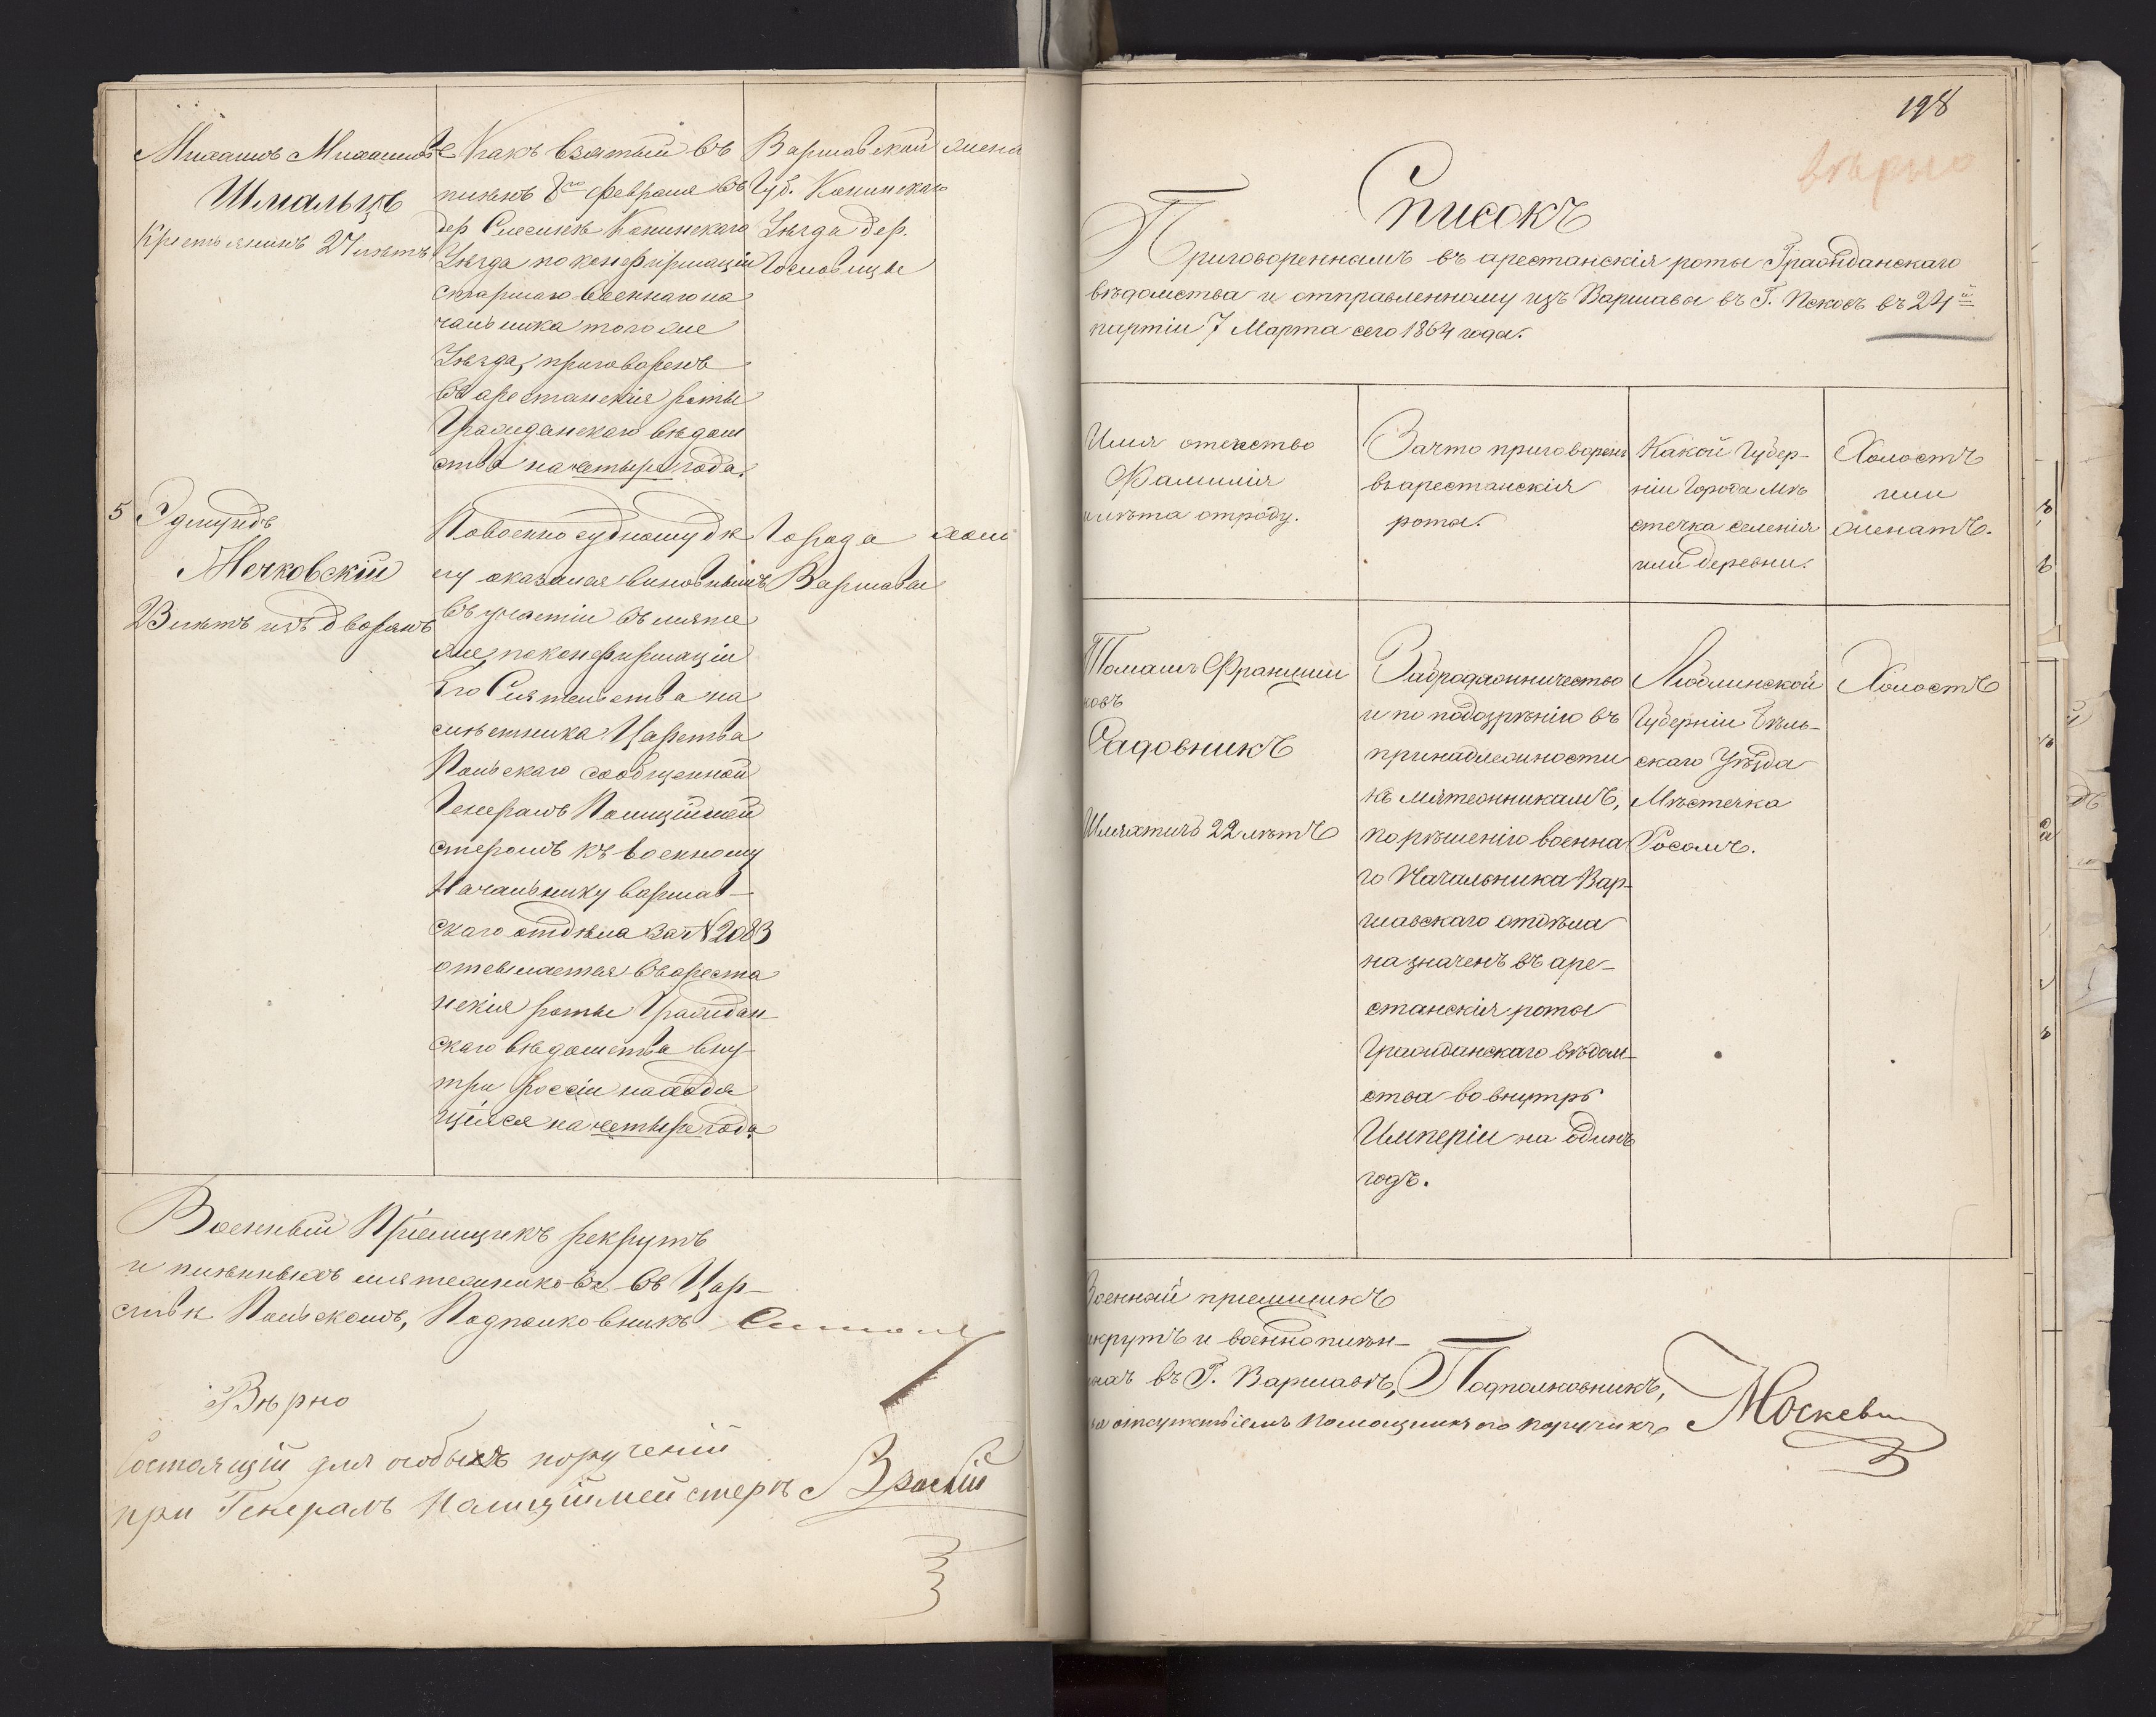 Михаилъ Михаиловъ
Шмальцъ
Крестьянинъ 27 лѣтъ
Какъ взятый въ
плѣнъ 8го февраля въ
дер Слесинѣ Конинскаго
Уѣзда по конфирмаціи
старшаго военнаго на
чальника того же
Уѣзда, приговоренъ
въ арестанскія роты
Гражданскаго вѣдом
ства на четыре года.
Варшавской
Губ. Конинскаго
Уѣзда дер.
жена
5 Эдмундъ
Мечковскій
23 лѣтъ изъ дворянъ
По военно судному дѣ
лу оказался виновнымъ
въ участіи въ мяте
же, по конфирмаціи
Его Сіятельства На
мѣстника Царства
Польскаго сообщенной
Генералъ Полиціймей
стеромъ къ военному
Начальнику Варшав-
скаго отдѣла за № 2083
отсылается въ ареста
нскія роты Граждан
скаго вѣдомства вну-
три Россіи находя
щіяся на четыре года
Города
Варшавы
холо
Военный Пріемщикъ рекрутъ
и плѣнныхъ мятежниковъ въ Цар-
ствѣ Польскомъ, Подполковникъ
Вѣрно
Состоящій для особыхъ порученій
при Генералъ Полиціймейстерѣ
198
вѣрно
Списокъ
Приговореннымъ въ арестанскія роты Гражданскаго
вѣдомства и отправленному изъ Варшавы въ Г. Псковъ въ 24й
партіи 7 Марта сего 1864 года.
Имя отечество
Фамилія
и лѣта отроду.
За что приговоренъ
въ арестанскія
роты.
Какой Губер-
ніи Города Мѣ
стечка селенія
или деревни.
Холостъ
или
женатъ.
Томашъ Францишк
ковъ
Садовникъ
Шляхтичъ 22 лѣтъ
За бродяжничество
и по подозрѣнію въ
принадлежности
къ мятежникамъ,
по рѣшенію военна
го Начальника Вар-
шавскаго отдѣла
назначенъ въ аре-
станскія роты
Гражданскаго вѣдом-
ства во внутрь
Имперіи на одинъ
годъ.
Люблинской
Губерніи Бѣль-
скаго Уѣзда
Мѣстечка
Росошъ.
Холостъ
Военный пріемщикъ
рекрутъ и военноплѣн-
ныхъ въ Г. Варшавѣ, Подполковникъ,
за отсутствіемъ Помощникъ его Поручикъ